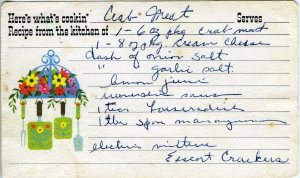 Here's what's cookin' Crab Meat Serves
Recipe from the kitchen of 1-6 oz pkg crab meat
1-8 oz pkg cream cheese
dash of onion salt
" garlic salt
lemon juice
1 tea horseradish
1 tbs spon
electric mixture
Escort Crackers